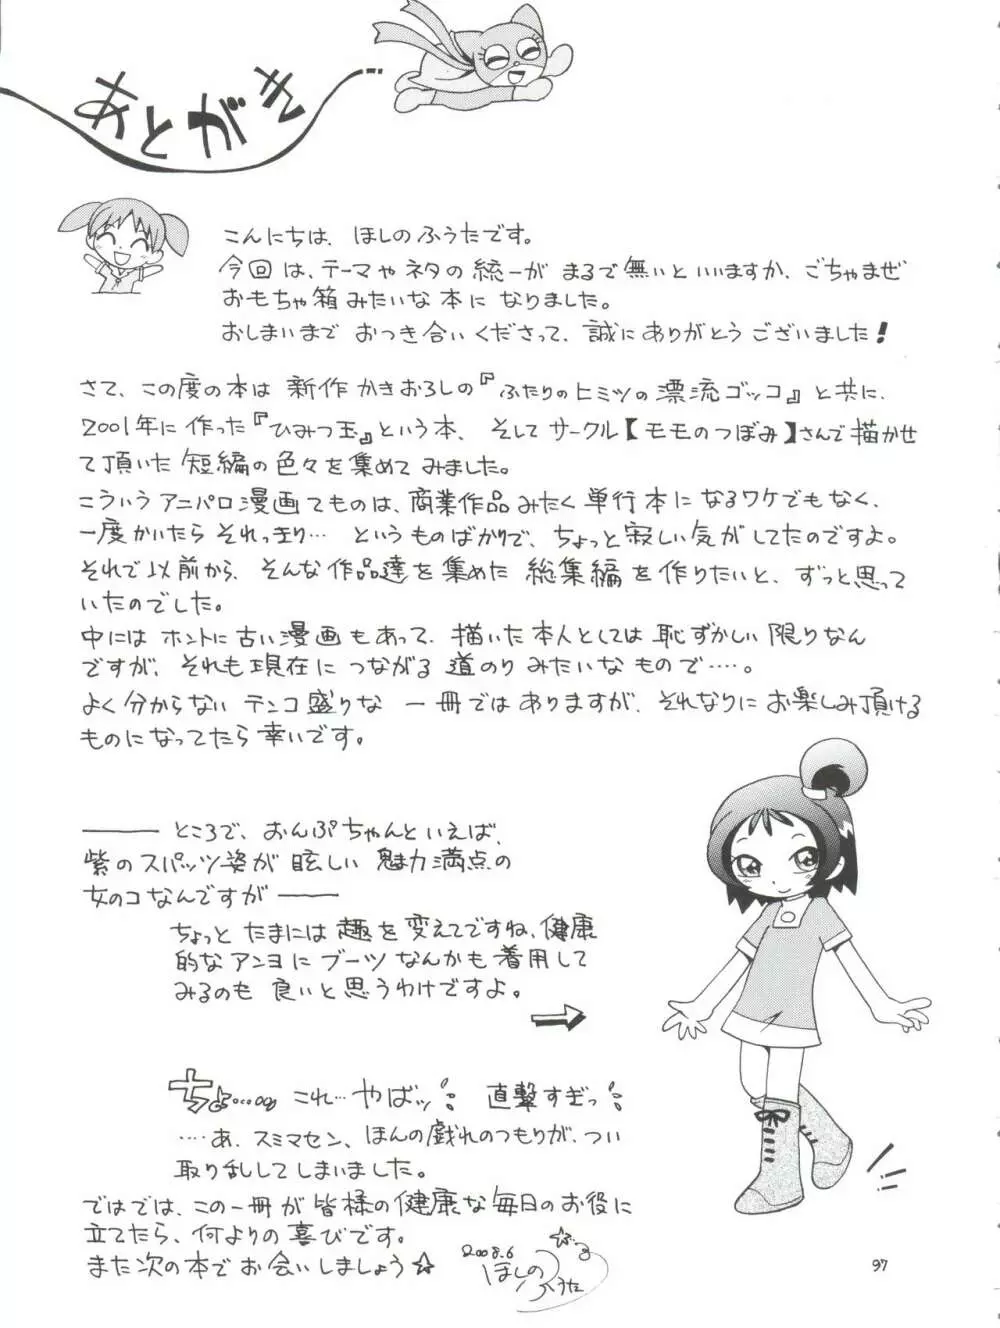 あとがき
こんにちは、ほしのふうたです。
今回は、テーマやネタの統一が まるで無いといいますか、ごちゃまぜ
おもちゃ箱みたいな本に なりました。
おしまいまで おつき合いくださって、誠にありがとうございました!
さて、この度の本は 新作 かきおろしの『ふたりのヒミツの漂流ゴッコ』と共に、
2001年に 作った『ひみつ玉』という本、そしてサークル【モモのつぼみ】さんで描かせ
て頂いた 短編の色々を集めて みました。
こういうアニパロ漫画てものは、商業作品みたく単行本になるワケでもなく、
一度かいたら それっきり… というものばかりで、ちょっと寂しい気がしてたのですよ。
それで以前から、そんな作品達を集めた 総集編を作りたいと、ずっと思って
いたのでした。
中には ホントに古い漫画もあって、描いた本人としては 恥ずかしい限りなん
ですが、それも現在に つながる 道のり みたいな もので……。
よく分からない テンコ盛りな 一冊では ありますが、それなりに お楽しみ頂ける
ものになってたら 幸いです。
――ところで、おんぷちゃんといえば、
紫のスパッツ姿が 眩しい 魅力満点の
女のコなんですが――
ちょっと たまには 趣を変えてですね、健康
的なアンヨに ブーツなんかも 着用して
みるのも 良いと思うわけですよ。
ちょ… これ… やばッ!! 直撃すぎっ!!
……あ、スミマセン、ほんの戯れのつもりが、つい
取り乱してしまいました。
ではでは、この一冊が 皆様の健康な毎日のお役に
立てたら、何よりの喜びです。
また次の本で お会いしましょう☆
2008.6
ほしのふうた
97